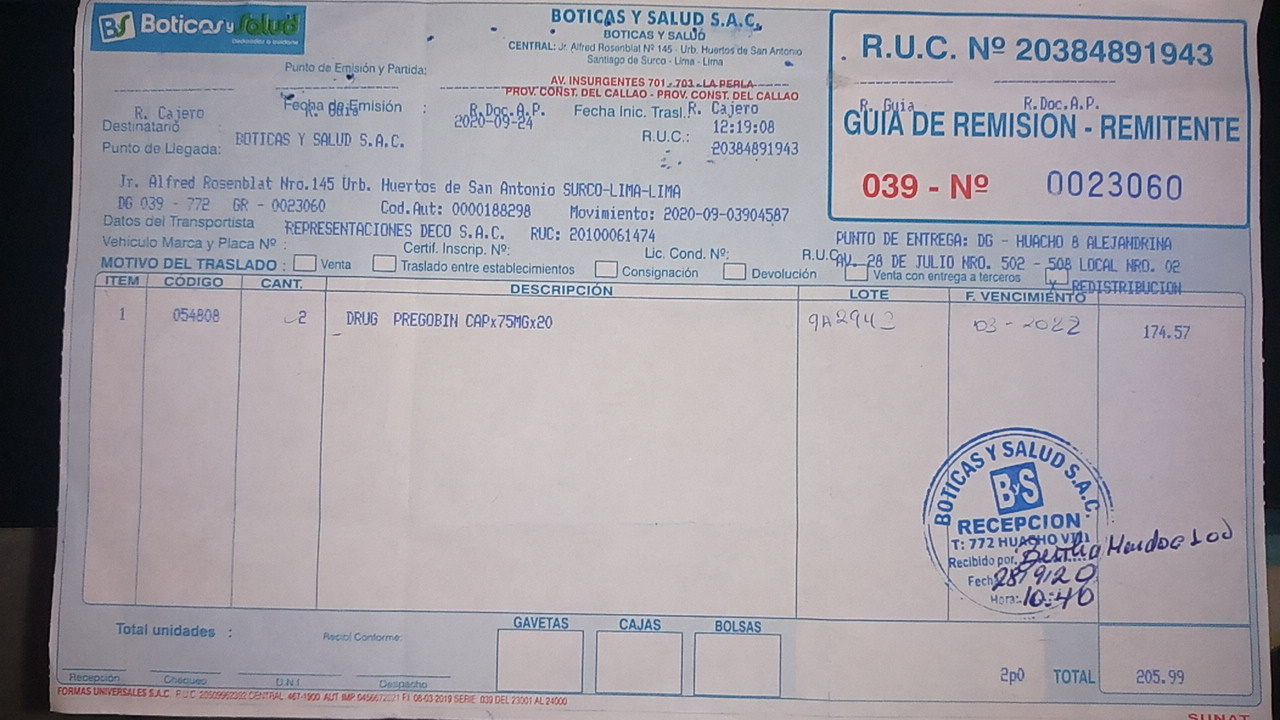 BS Boticas y Salud
BOTICAS Y SALUD S.A.C.
BOTICAS Y SALUD
CENTRAL: Jr. Alfred Rosenblat Nº 145 - Urb. Huertos de San Antonio
Santiago de Surco - Lima - Lima
Punto de Emisión y Partida:
AV. INSURGENTES 701 - 703 - LA PERLA
PROV. CONST. DEL CALLAO - PROV. CONST. DEL CALLAO
R.U.C. Nº 20384891943
R. Guia R.Doc.A.P.
GUIA DE REMISION - REMITENTE
039 - Nº 0023060
R. Cajero Fecha de Emisión : R.Doc.A.P. Fecha Inic. Trasl. R. Cajero
R. Guia 2020-09-24 12:19:08
Destinatario BOTICAS Y SALUD S.A.C. R.U.C.: 20384891943
Punto de Llegada:
Jr. Alfred Rosenblat Nro.145 Urb. Huertos de San Antonio SURCO-LIMA-LIMA
DG 039 - 772 GR - 0023060 Cod.Aut: 0000188298 Movimiento: 2020-09-03904587
Datos del Transportista REPRESENTACIONES DECO S.A.C. RUC: 20100061474
PUNTO DE ENTREGA: DG - HUACHO 8 ALEJANDRINA
Vehículo Marca y Placa Nº : Certif. Inscrip. Nº: Lic. Cond. Nº: R.U.C.
AV. 28 DE JULIO NRO. 502 - 508 LOCAL NRO. 02
MOTIVO DEL TRASLADO : Venta Traslado entre establecimientos Consignación Devolución Venta con entrega a terceros X REDISTRIBUCION
ITEM CÓDIGO CANT. DESCRIPCIÓN LOTE F. VENCIMIENTO
1 054808 2 DRUG PREGOBIN CAPx75MGx20 9A2942 03-2022 174.57
BOTICAS Y SALUD S.A.C.
ByS
RECEPCION
T: 772 HUACHO VIII
Recibido por:
Fecha 28/9/20
Hora: 10:40
Total unidades : Recibí Conforme:
GAVETAS CAJAS BOLSAS
2p0 TOTAL 205.99
Recepción Chequeo D.N.I. Despacho
FORMAS UNIVERSALES S.A.C. CENTRAL 467-1900 F.I. 08-03 2019 SERIE: 039 DEL 23001 AL 24000
SUNAT